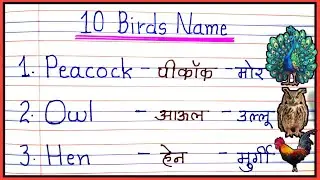 10 Birds Name
1. Peacock - पीकॉक - मोर
2. Owl - आऊल - उल्लू
3. Hen - हेन - मुर्गी